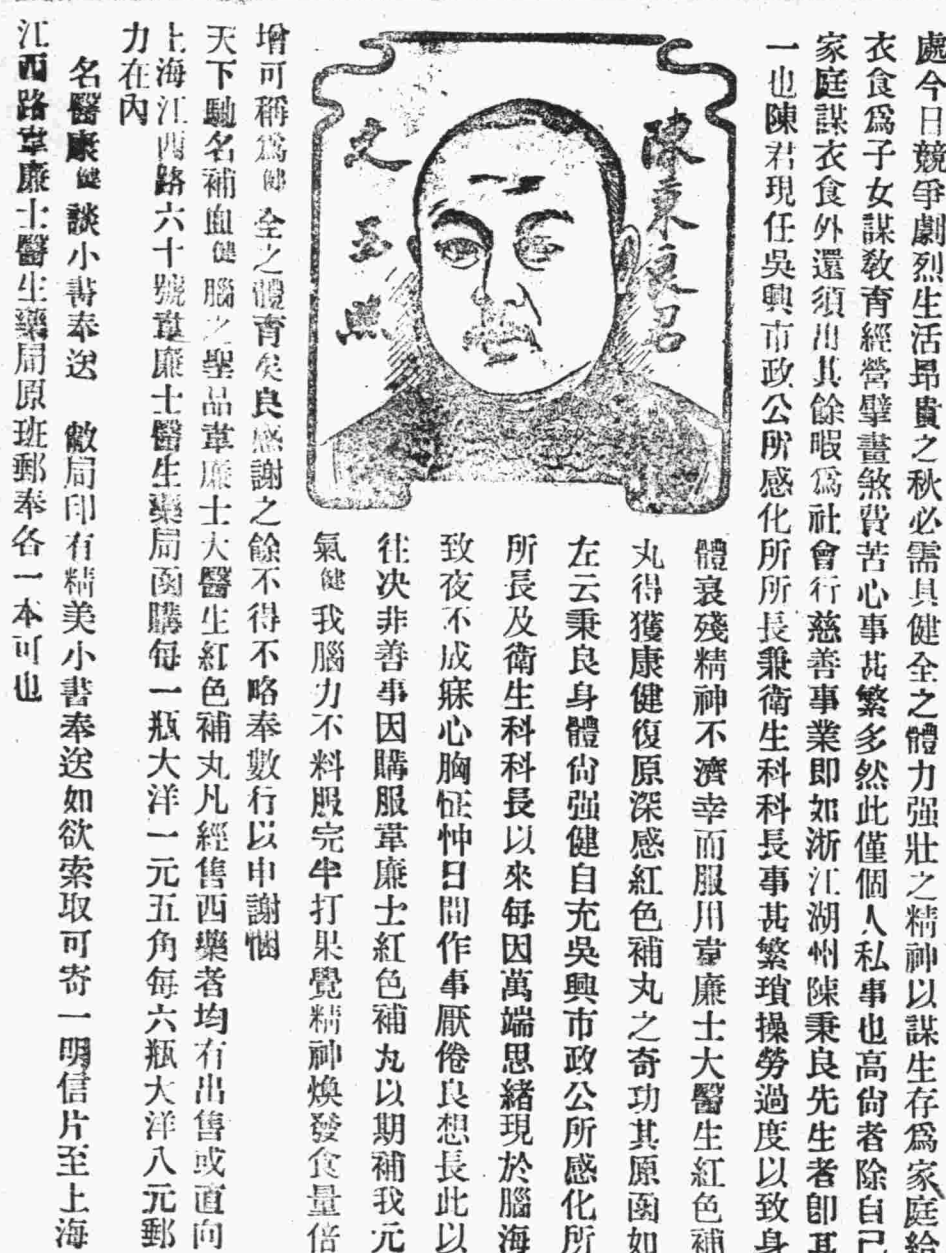 處今日競爭劇烈生活昂貴之秋必需具健全之體力强壯之精神以謀生存爲家庭給
衣食爲子女謀敎育經營擘畫煞費苦心事甚繁多然此僅個人私事也高尙者除自己
家庭謀衣食外還須出其餘暇爲社會行慈善事業即如浙江湖州陳秉良先生者卽其
一也陳君現任吳興市政公所感化所所長兼衛生科科長事甚繁瑣操勞過度以致身
體衰殘精神不濟幸而服用韋廉士大醫生紅色補
丸得獲康健復原深感紅色補丸之奇功其原函如
左云秉良身體尙强健自充吳興市政公所感化所
所長及衛生科科長以來每因萬端思緒現於腦海
致夜不成寐心胸怔忡日間作事厭倦良想長此以
往决非善事因購服韋廉士紅色補丸以期補我元
氣健我腦力不料服完半打果覺精神煥發食量倍
陳秉良君
之玉照
增可稱爲健全之體育矣良感謝之餘不得不略奉數行以申謝悃
天下馳名補血健腦之聖品韋廉士大醫生紅色補丸凡經售西藥者均有出售或直向
上海江西路六十號韋廉士醫生藥局函購每一瓶大洋一元五角每六瓶大洋八元郵
力在內
名醫康健談小書奉送 敝局印有精美小書奉送如欲索取可寄一明信片至上海
江西路韋廉士醫生藥局原班郵奉各一本可也